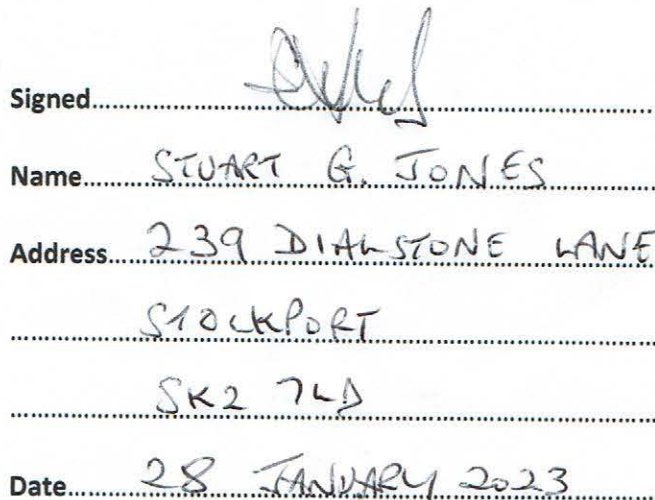 Signed
Name STUART G. JONES
Address 239 DIALSTONE LANE
STOCKPORT
SK2 7LD
Date 28 JANUARY 2023